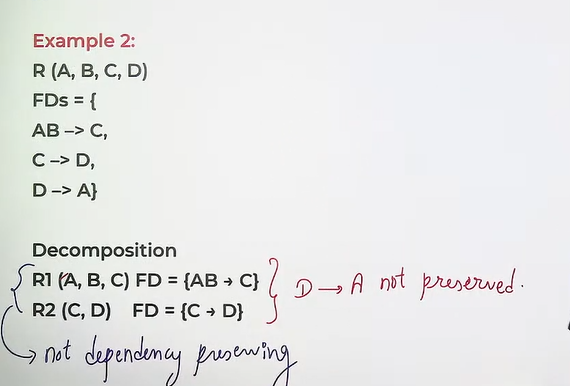 Example 2:
R (A, B, C, D)
FDs = {
AB -> C,
C -> D,
D -> A}
Decomposition
R1 (A, B, C) FD = {AB → C}
R2 (C, D) FD = {C → D}
D → A not preserved.
not dependency preserving